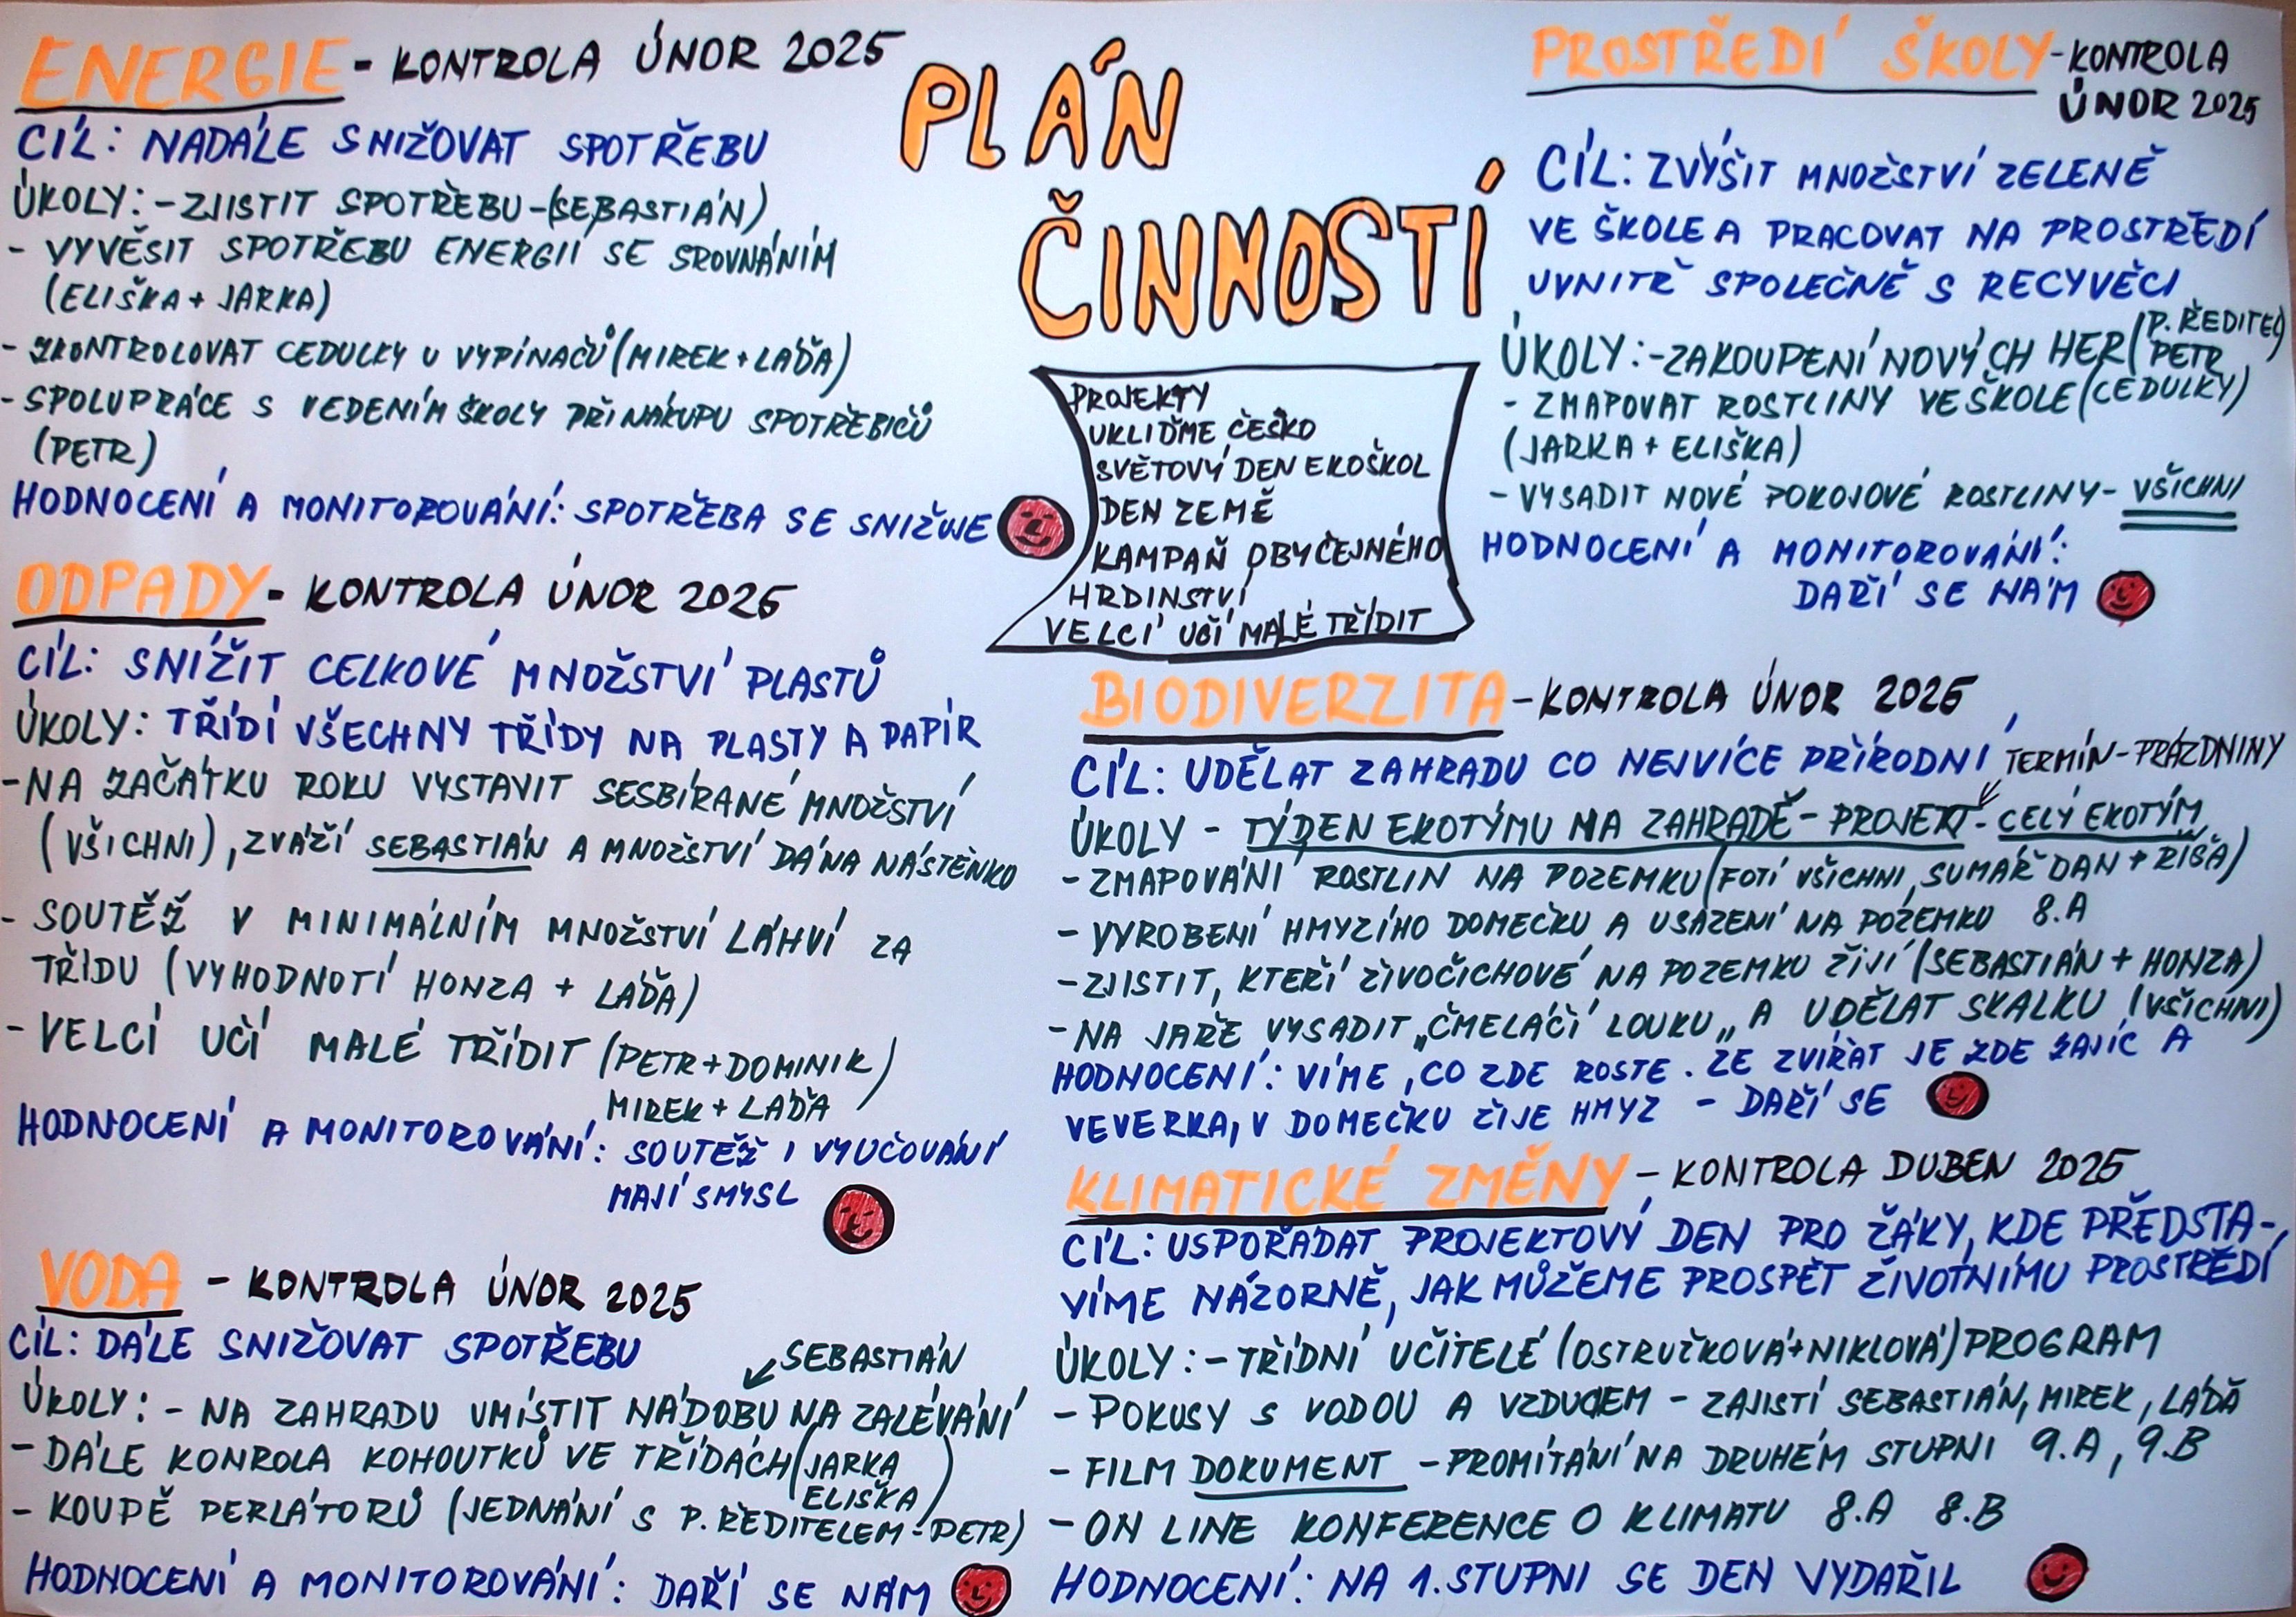 PLÁN
ČINNOSTÍ
ENERGIE - KONTROLA ÚNOR 2025
CÍL: NADÁLE SNIŽOVAT SPOTŘEBU
ÚKOLY: - ZJISTIT SPOTŘEBU - (SEBASTIÁN)
- VYVĚSIT SPOTŘEBU ENERGIÍ SE SROVNÁNÍM
(ELIŠKA + JARKA)
- ZKONTROLOVAT CEDULKY U VYPÍNAČŮ (MIREK + LÁĎA)
- SPOLUPRÁCE S VEDENÍM ŠKOLY PŘI NÁKUPU SPOTŘEBIČŮ
(PETR)
HODNOCENÍ A MONITOROVÁNÍ: SPOTŘEBA SE SNIŽUJE
ODPADY - KONTROLA ÚNOR 2025
CÍL: SNÍŽIT CELKOVÉ MNOŽSTVÍ PLASTŮ
ÚKOLY: TŘÍDÍ VŠECHNY TŘÍDY NA PLASTY A PAPÍR
- NA ZAČÁTKU ROKU VYSTAVIT SESBÍRANÉ MNOŽSTVÍ
(VŠICHNI), ZVÁŽÍ SEBASTIÁN A MNOŽSTVÍ DÁ NA NÁSTĚNKO
- SOUTĚŽ V MINIMÁLNÍM MNOŽSTVÍ LÁHVÍ ZA
TŘÍDU (VYHODNOTÍ HONZA + LÁĎA)
- VELCÍ UČÍ MALÉ TŘÍDIT (PETR + DOMINIK)
MIREK + LÁĎA
HODNOCENÍ A MONITOROVÁNÍ: SOUTĚŽ I VYUČOVÁNÍ
MAJÍ SMYSL
VODA - KONTROLA ÚNOR 2025
CÍL: DÁLE SNIŽOVAT SPOTŘEBU
SEBASTIÁN
ÚKOLY: - NA ZAHRADU UMÍSTIT NÁDOBU NA ZALÉVÁNÍ
- DÁLE KONROLA KOHOUTKŮ VE TŘÍDÁCH (JARKA
ELIŠKA)
- KOUPĚ PERLÁTORŮ (JEDNÁNÍ S P. ŘEDITELEM - PETR)
HODNOCENÍ A MONITOROVÁNÍ: DAŘÍ SE NÁM
PROJEKTY
UKLIĎME ČESKO
SVĚTOVÝ DEN EKOŠKOL
DEN ZEMĚ
KAMPAŇ OBYČEJNÉHO
HRDINSTVÍ
VELCÍ UČÍ MALÉ TŘÍDIT
PROSTŘEDÍ ŠKOLY - KONTROLA
ÚNOR 2025
CÍL: ZVÝŠIT MNOŽSTVÍ ZELENĚ
VE ŠKOLE A PRACOVAT NA PROSTŘEDÍ
UVNITŘ SPOLEČNĚ S RECYVĚCI
ÚKOLY: - ZAKOUPENÍ NOVÝCH HER (P. ŘEDITEL)
PETR
- ZMAPOVAT ROSTLINY VE ŠKOLE (CEDULKY)
(JARKA + ELIŠKA)
- VYSADIT NOVÉ POKOJOVÉ ROSTLINY - VŠICHNI
HODNOCENÍ A MONITOROVÁNÍ:
DAŘÍ SE NÁM
BIODIVERZITA - KONTROLA ÚNOR 2025
CÍL: UDĚLAT ZAHRADU CO NEJVÍCE PŘÍRODNÍ
TERMÍN - PRÁZDNINY
ÚKOLY - TÝDEN EKOTÝMU NA ZAHRADĚ - PROJEKT - CELÝ EKOTÝM
- ZMAPOVÁNÍ ROSTLIN NA POZEMKU (FOTÍ VŠICHNI, SUMÁŘ DAN + RÍŠA)
- VYROBENÍ HMYZÍHO DOMEČKU A USAZENÍ NA POZEMKO 8.A
- ZJISTIT, KTEŘÍ ŽIVOČICHOVÉ NA POZEMKU ŽIJÍ (SEBASTIÁN + HONZA)
- NA JAŘE VYSADIT „ČMELÁČÍ LOUKU„ A UDĚLAT SKALKU (VŠICHNI)
HODNOCENÍ: VÍME, CO ZDE ROSTE. ZE ZVÍŘAT JE ZDE ZAJÍC A
VEVERKA, V DOMEČKU ŽIJE HMYZ - DAŘÍ SE
KLIMATICKÉ ZMĚNY - KONTROLA DUBEN 2025
CÍL: USPOŘÁDAT PROJEKTOVÝ DEN PRO ŽÁKY, KDE PŘEDSTA-
VÍME NÁZORNĚ, JAK MŮŽEME PROSPĚT ŽIVOTNÍMU PROSTŘEDÍ
ÚKOLY: - TŘÍDNÍ UČITELÉ (OSTRUŽKOVÁ + NIKLOVÁ) PROGRAM
- POKUSY S VODOU A VZDUCEM - ZAJISTÍ SEBASTIÁN, MIREK, LÁĎA
- FILM DOKUMENT - PROMÍTÁNÍ NA DRUHÉM STUPNI 9.A, 9.B
- ON LINE KONFERENCE O KLIMATU 8.A 8.B
HODNOCENÍ: NA 1. STUPNI SE DEN VYDAŘIL